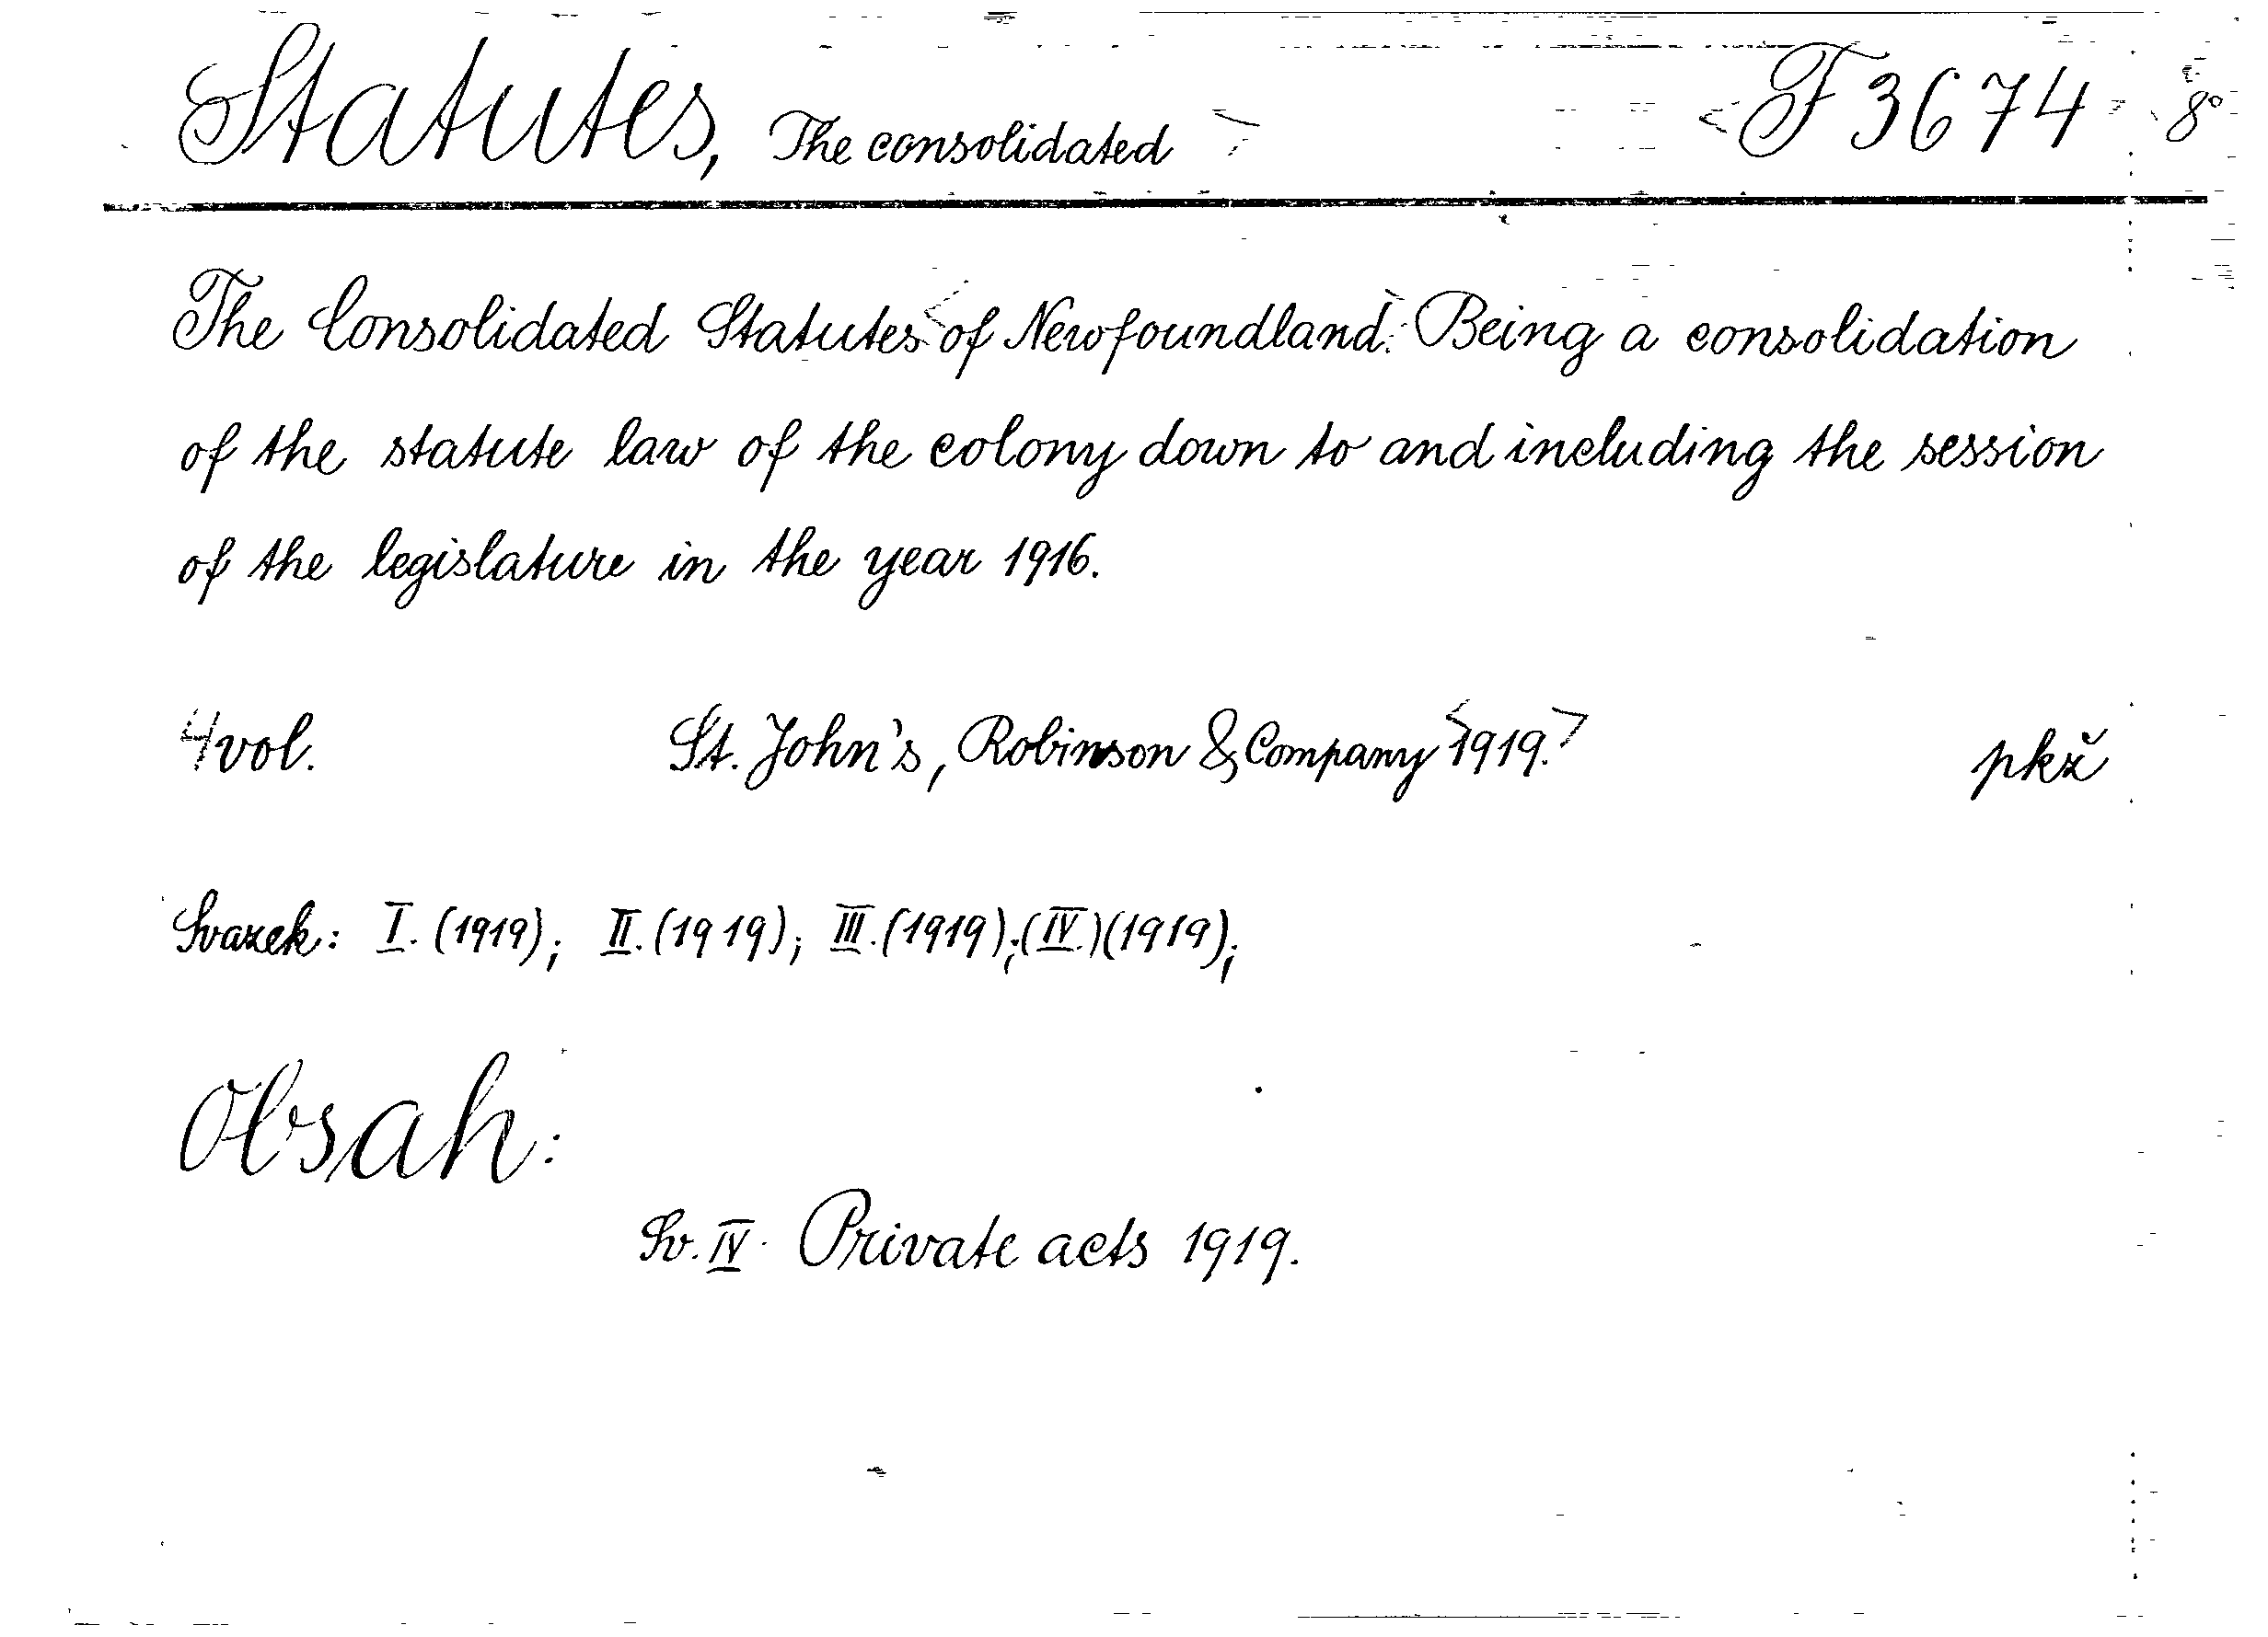 Statutes, The consolidated F 3674 8°
The Consolidated Statutes of Newfoundland. Being a consolidation
of the statute law of the colony down to and including the session
of the legislature in the year 1916.
4 vol. St. John's, Robinson & Company 1919. pkž
Svazek: I. (1919); II. (1919); III. (1919); (IV.) (1919);
Obsah:
Sv. IV. Private acts 1919.